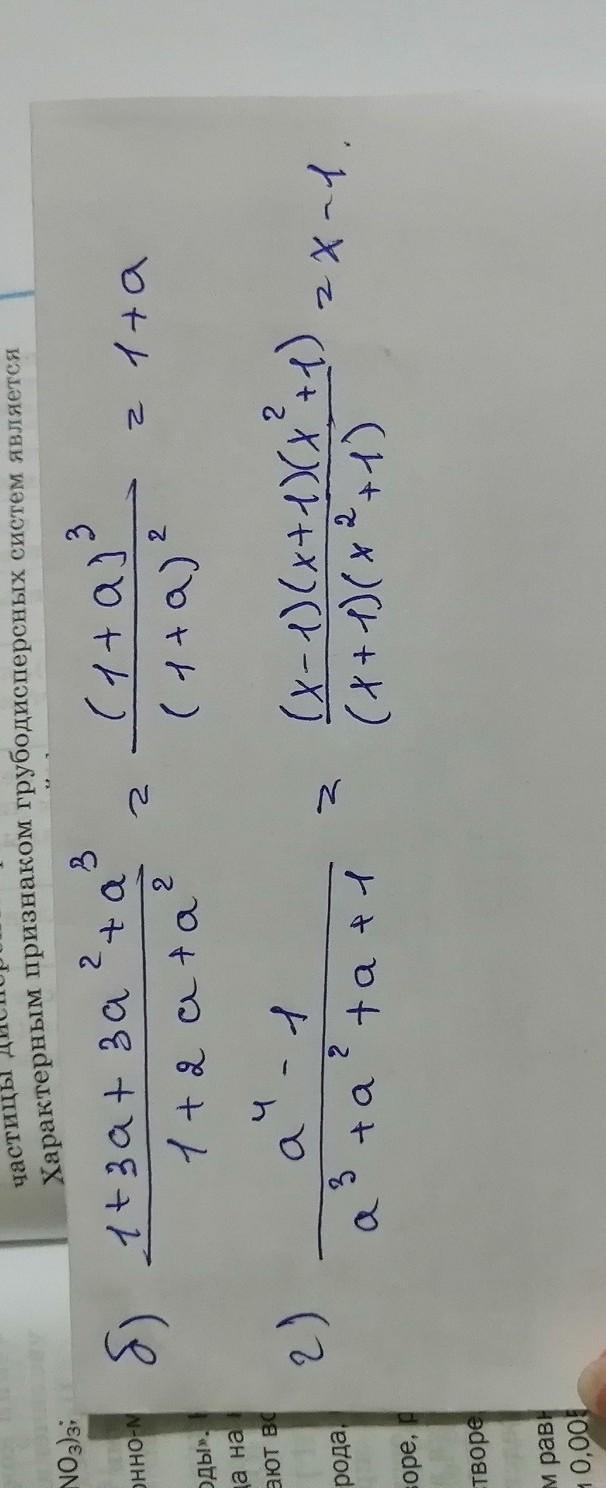 частицы
Характерным признаком грубодисперсных систем является
б) 1+3a+3a²+a³ / 1+2a+a² = (1+a)³ / (1+a)² = 1+a
г) a⁴-1 / a³+a²+a+1 = (x-1)(x+1)(x²+1) / (x+1)(x²+1) = x-1.
NO₃)₃;
оды».
а на
ают
рода,
воре,
творе
м
0,005